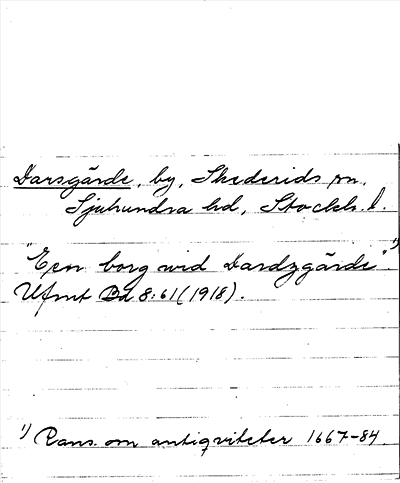 Darsgärde, by, Skederids sn,
Sjuhundra hd, Stockh. l.
"Een borg wid Dardzgärde". 1)
Ufmt Bd 8:61 (1918).
1) Rans. om antiqviteter 1667-84.